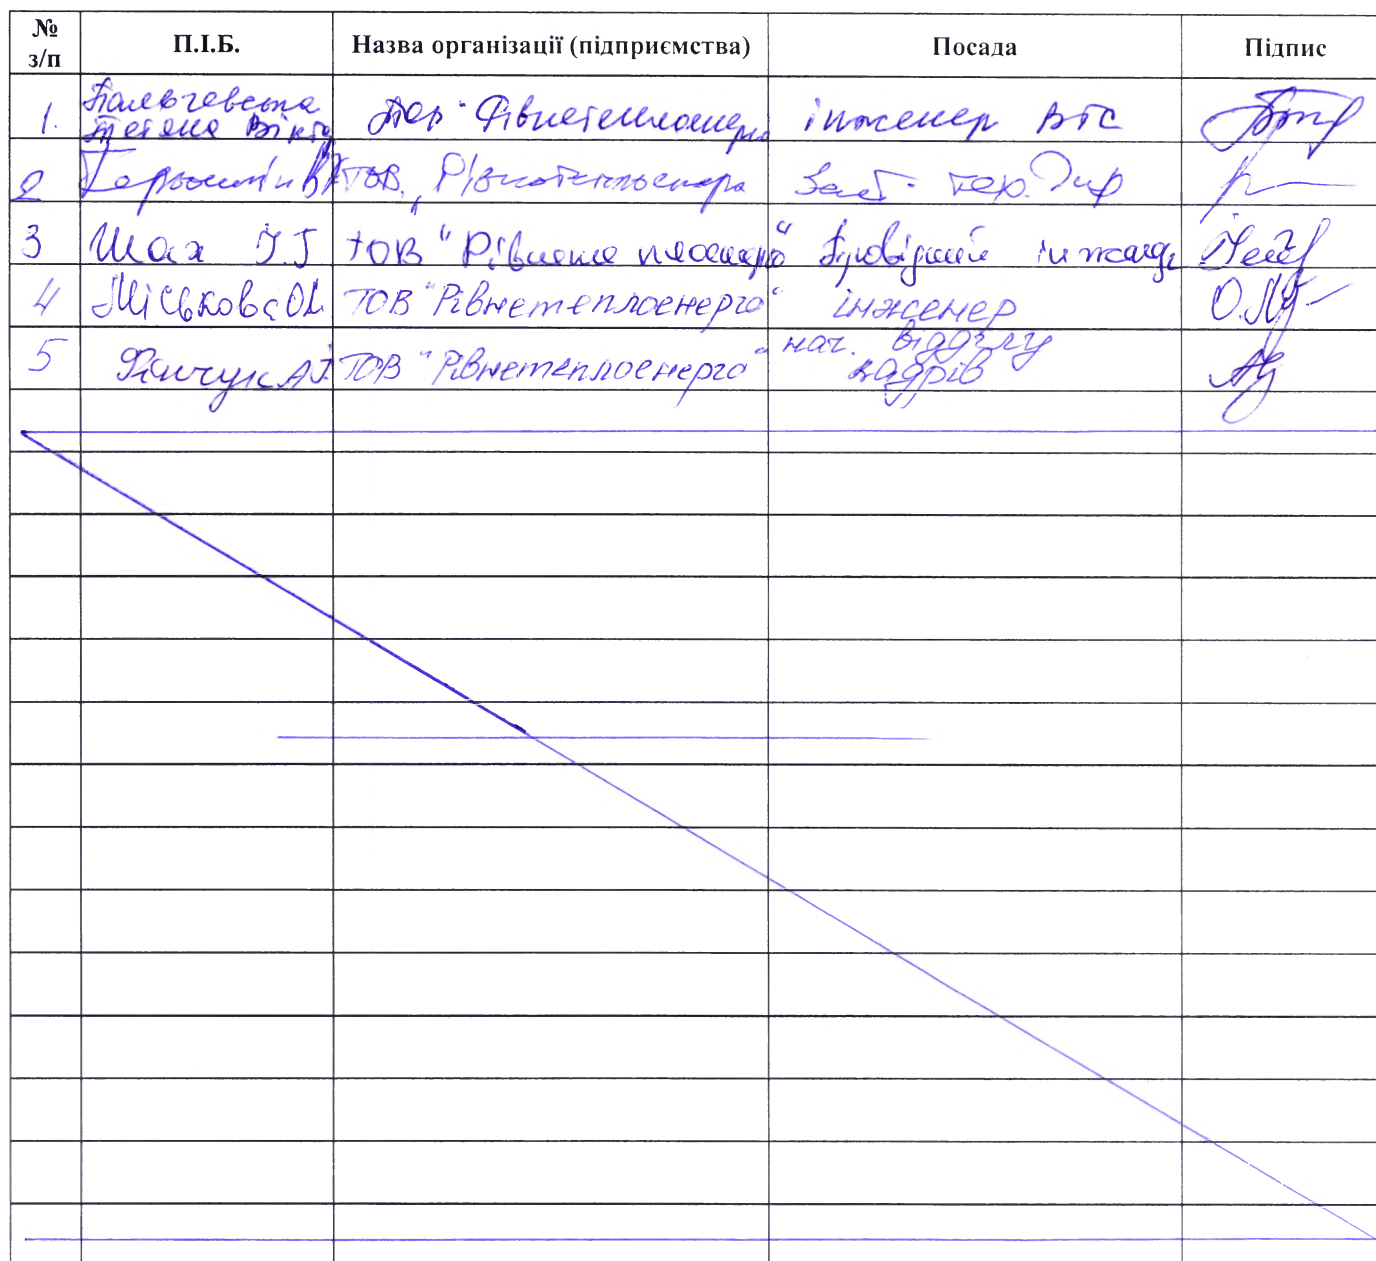 № з/п П.І.Б. Назва організації (підприємства) Посада Підпис
1. Пальчевська Тетяна Вікт інженер ВТС
2 ТОВ "Рівнетеплоенерго Заст. Дир
3 Шах І.Г ТОВ "Рівнетеплоенерго" Провідний інженер
4 Міськова О.М. ТОВ "Рівнетеплоенерго" інженер
5 ТОВ "Рівнетеплоенерго" нач. відділу кадрів